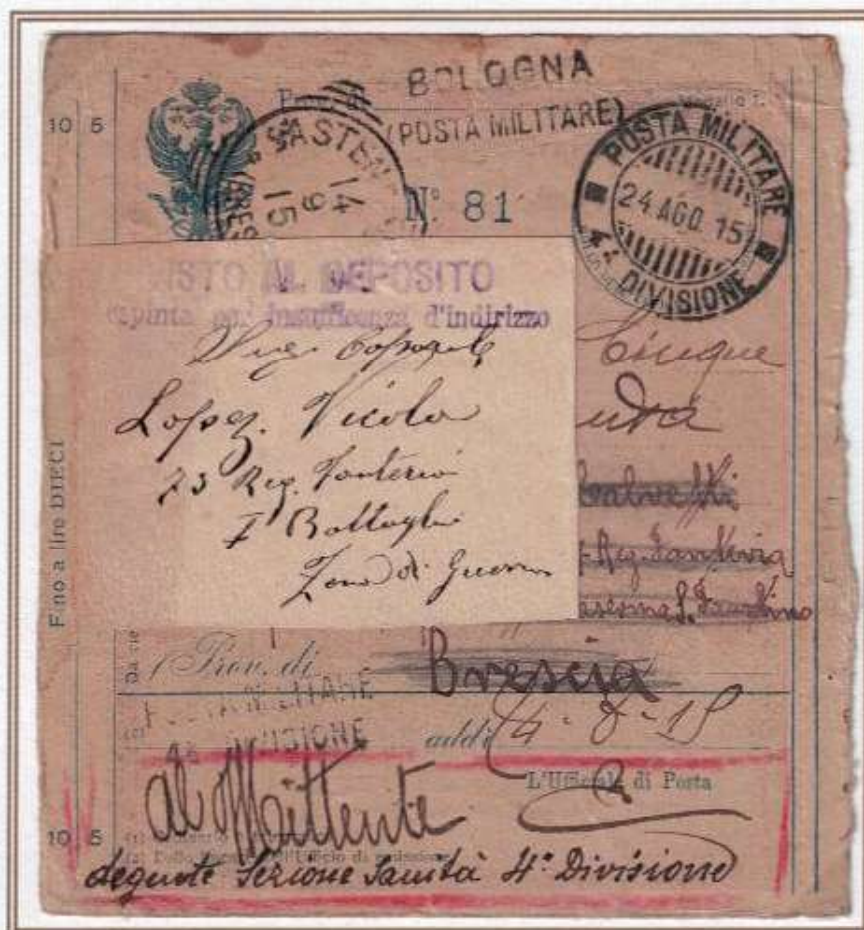 BOLOGNA
(POSTA MILITARE)
10 5
POSTA MILITARE
24 AGO. 15
4ª DIVISIONE
14
9
15
N.º 81
VISTO AL DEPOSITO
respinta per insufficenza d'indirizzo
Cinque
Lopez. Nicola
73 Reg. Fanteria
I Battaglio
Zona di Guerra
Reg. Fanteria
Caserma S. Faustino
Fino a lire DIECI
Prov. di Brescia
POSTA MILITARE
DIVISIONE
addì 14-8-15
L'Ufficiale di Posta
al Mittente
10 5
degente Sezione Sanità 4ª Divisione